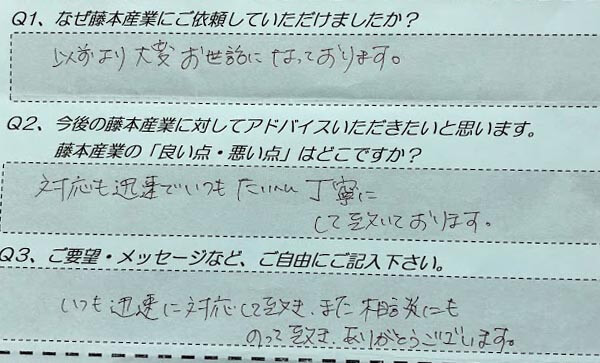 Q1、なぜ藤本産業にご依頼していただけましたか？
以前より大変お世話になっております。
Q2、今後の藤本産業に対してアドバイスいただきたいと思います。
藤本産業の「良い点・悪い点」はどこですか？
対応も迅速でいつもたいへん丁寧に
して頂いております。
Q3、ご要望・メッセージなど、ご自由にご記入下さい。
いつも迅速に対応して頂き、また相談にも
のって頂き、ありがとうございます。